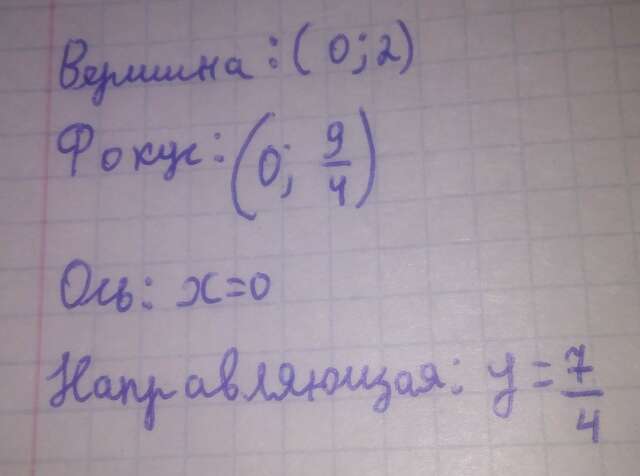 Вершина: (0; 2)
Фокус: (0; 9/4)
Ось: x=0
Направляющая: y = 7/4